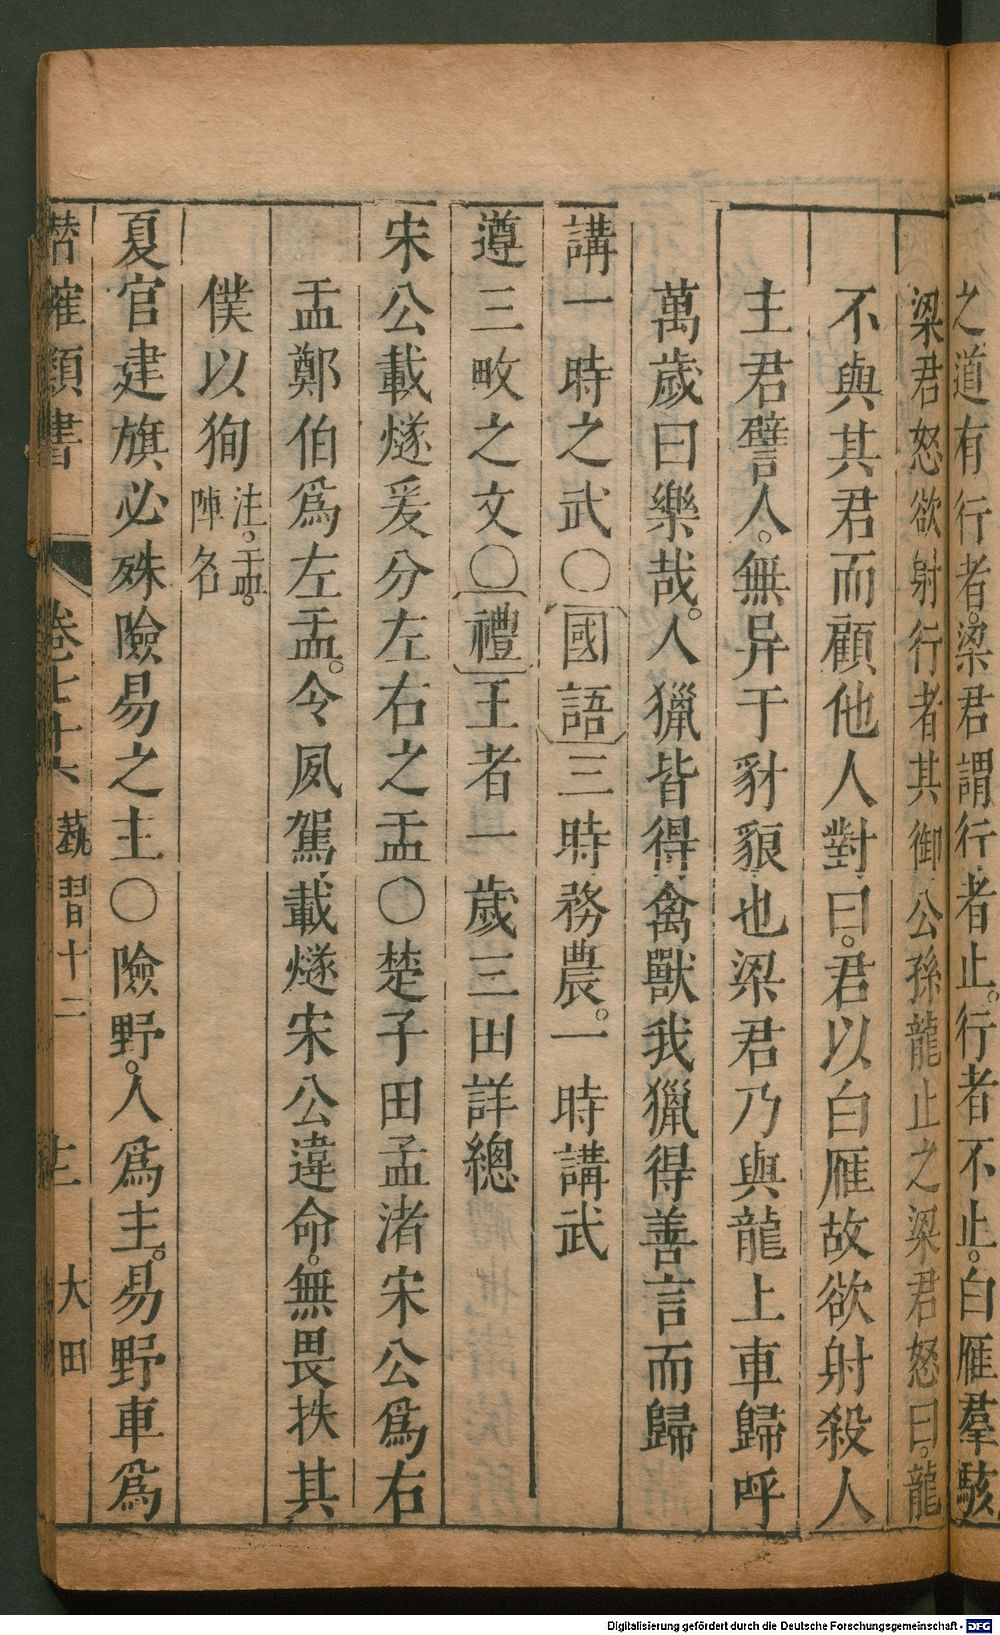 之道有行者。梁君謂行者止。行者不止。白雁羣駭
梁君怒欲射行者其御公孫龍止之梁君怒曰。龍
不與其君而顧他人對曰。君以白雁故欲射殺人
主君譬人。無异于豺貌也梁君乃與龍上車歸呼
萬歲曰樂哉。人獵皆得禽獸我獵得善言而歸
講一時之武〇國語三時務農。一時講武
遵三畋之文〇禮王者一歲三田詳總
宋公載燧爰分左右之盂〇楚子田孟渚宋公爲右
盂鄭伯爲左盂。令夙駕載燧宋公違命。無畏抶其
僕以狥注。盂。陣名
夏官建旗必殊險易之主〇險野。人爲主。易野車爲
潛確類書 卷七十六 蓺習十二 十二 大田
Digitalisierung gefördert durch die Deutsche Forschungsgemeinschaft - DFG